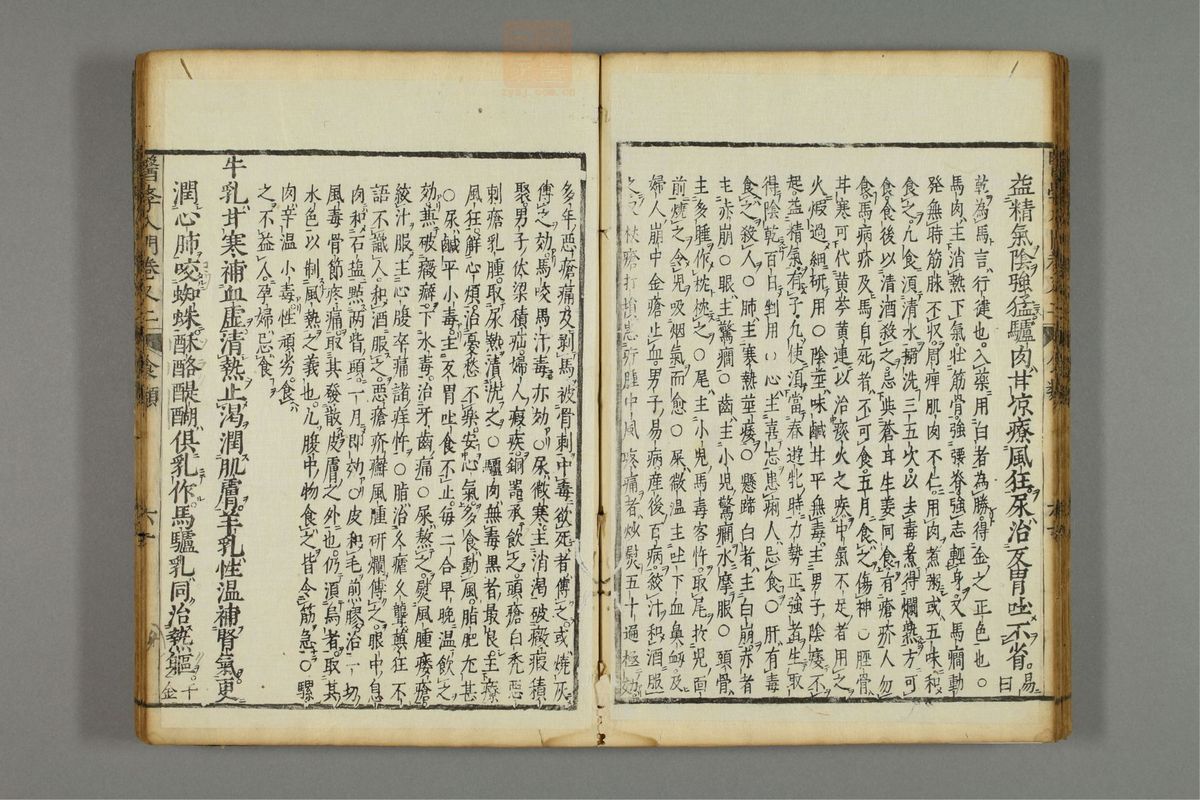 益精氣陰強猛驢肉甘凉療風狂尿治反胃吐不省易曰
乾為馬言行健也入藥用白者為勝得金之正色也○
馬肉主消熱下氣壯筋骨強腰脊強志輕身又馬癇動
発無時筋脉不収周痺肌肉不仁用肉煮粥或五味和
食之凡食須清水搦洗三五次以去毒煮得爛熟方可
食食後以清酒殺之忌與蒼耳生姜同食有瘡疥人勿
食馬病疥及馬自死者不可食五月食之傷神○脛骨
甘寒可代黄芩黄連以治痰火之疾中氣不足者用之
火煆過細研用○陰莖味鹹甘平無毒主男子陰痿不
起益精氣有子凡使須當春遊牝時力勢正強者生取
得陰乾百日剉用○心主喜忘患痢人忌食○肝有毒
食之殺人○肺主寒熱莖痿○懸蹄白者主白崩赤者
主赤崩○眼主驚癇○齒主小児驚癇水摩服○頭骨
主多睡作枕枕之○尾主小児馬毒客忤取尾於児面
前燒之令児吸烟氣而愈○屎微温主吐下血鼻衂及
婦人崩中金瘡止血男子易病産後百病絞汁和酒服
之 杖瘡打損患疔腫中風疼痛者炒熨五十遍極効
多年惡瘡痛及剝馬被骨刺中毒欲死者傅之或燒灰
傅之効馬咬馬汗毒亦効○尿微寒主消渴破癥瘕積
聚男子伏梁積疝婦人瘕疾銅噐承飲之頭瘡白禿惡
刺瘡乳腫取尿熱漬洗之○驢肉無毒黒者最良主療
風狂解心煩治憂愁不樂安心氣多食動風脂肥尤甚
○尿鹹平小毒主反胃吐食不止毎二合早晚温飲之
効兼破癥癖下水毒治牙齒痛○屎熬之熨風腫瘻瘡
絞汁服主心腹卒痛諸疰忤○脂治久瘧久聾䕹狂不
語不識人和酒服之惡瘡疥癬風腫研爛傅之眼中息
肉和石塩點兩眥頭一月即効○皮和毛煎膠治一切
風毒骨節疼痛取其發散皮膚之外也仍須烏者取其
水色以制風熱之義也凡腹中物食之皆令筋急○騾
肉辛温小毒性頑劣食
之不益人孕婦忌食
牛乳甘寒補血虚清熱止渴潤肌膚羊乳性温補腎氣更
潤心肺咬蜘蛛酥酪醍醐俱乳作馬驢乳同治熱軀千金